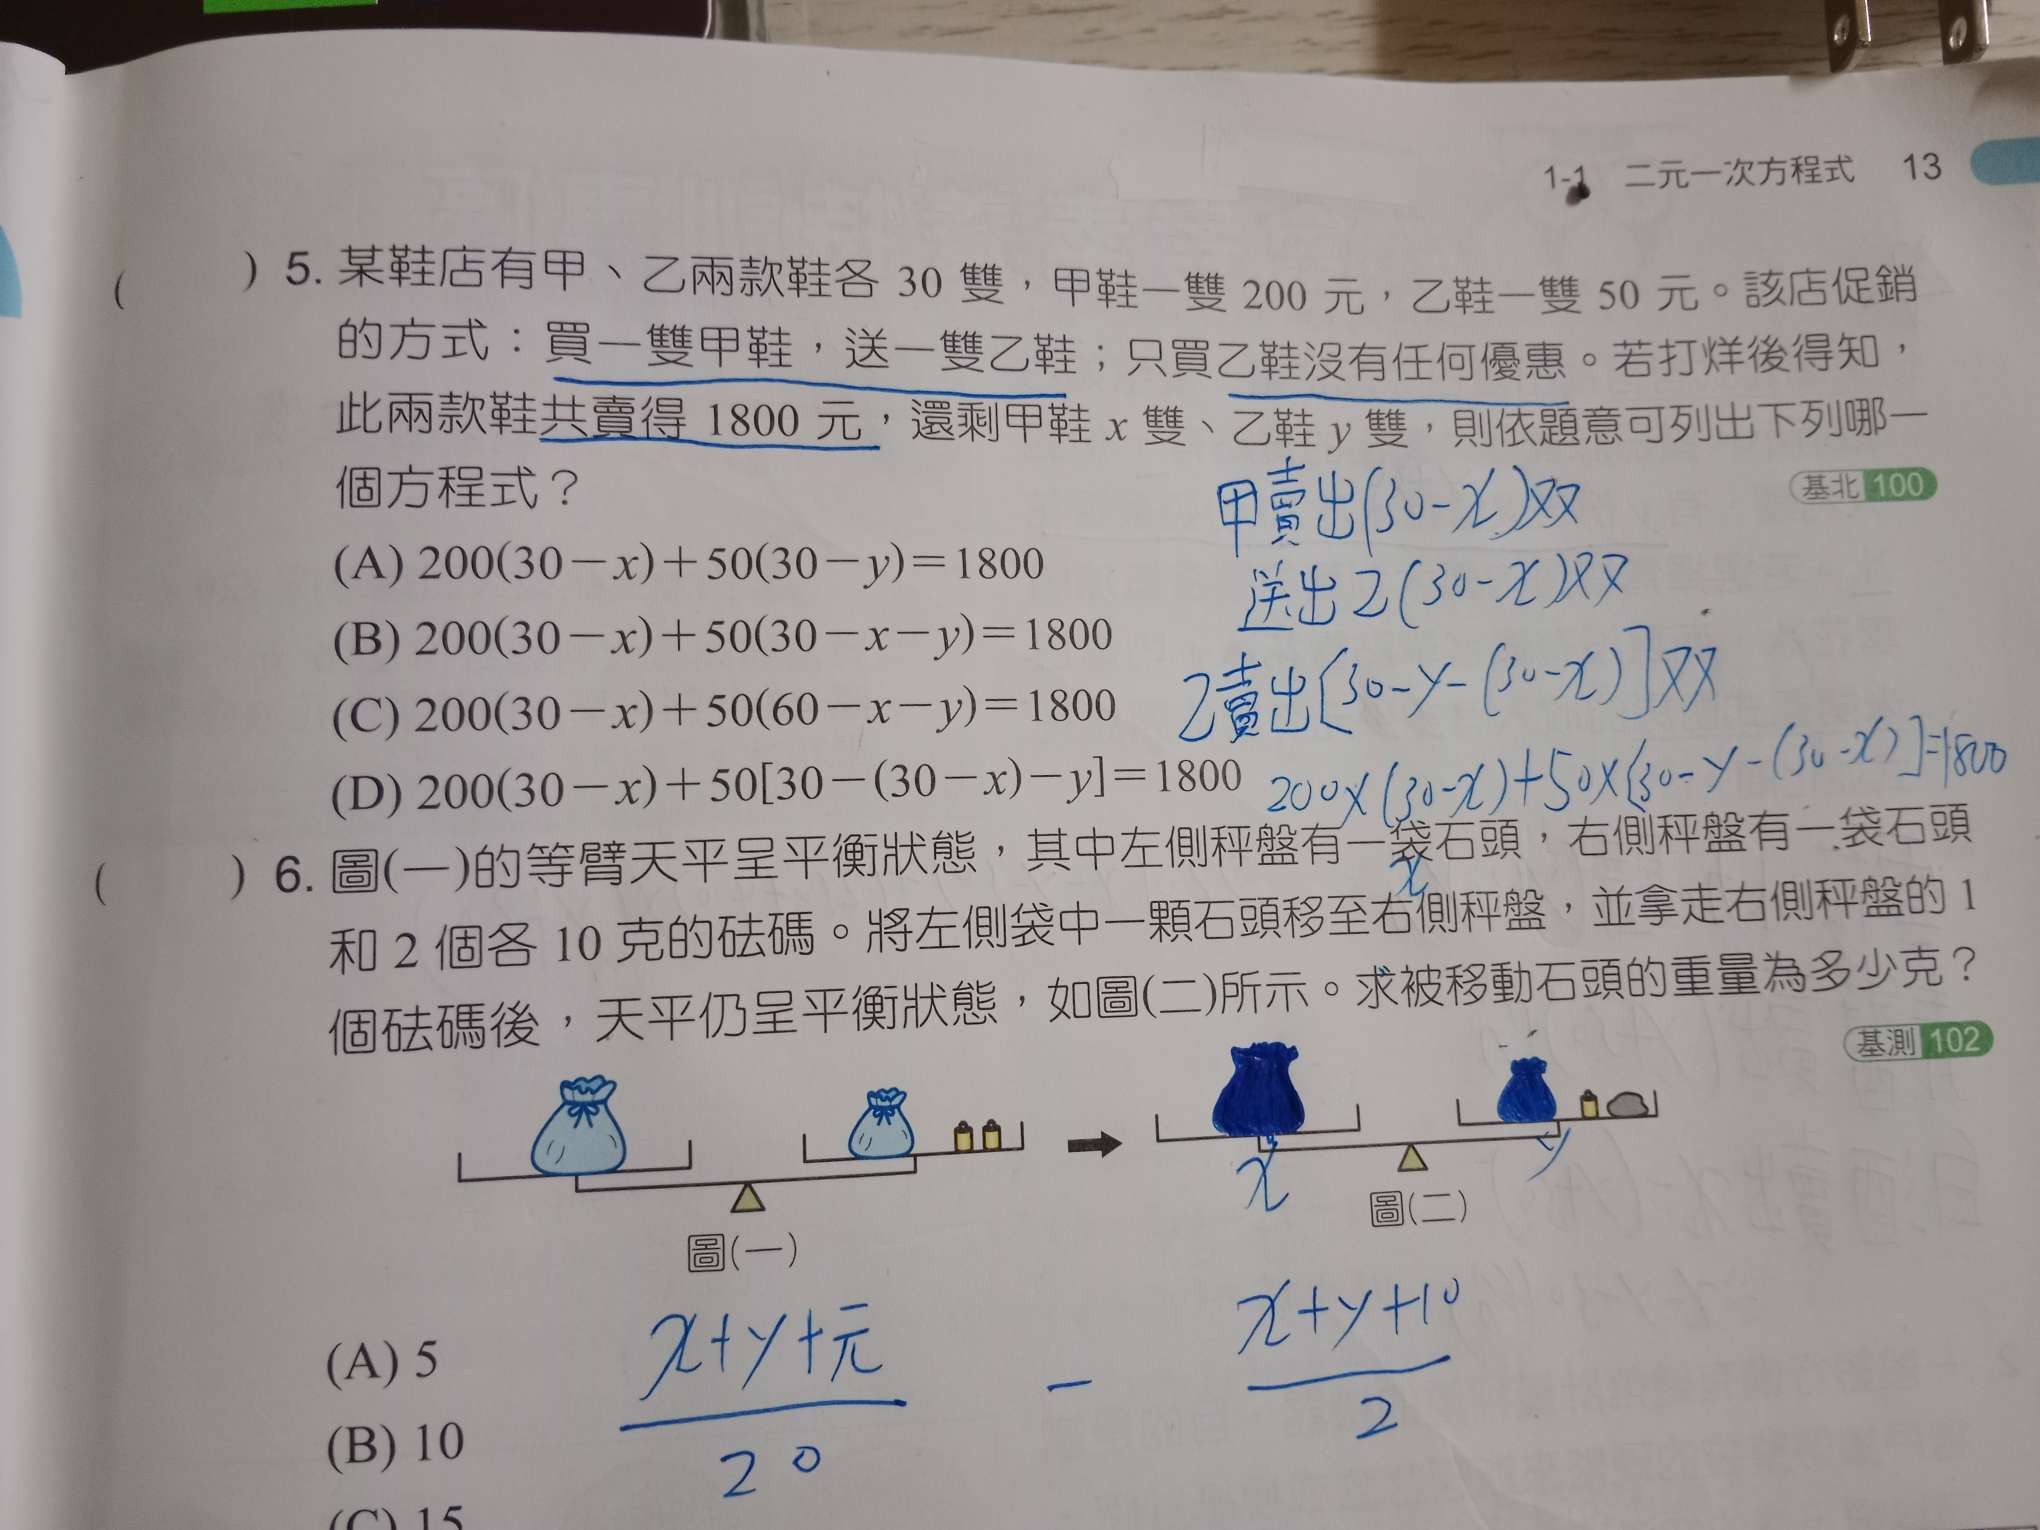 1-1 二元一次方程式 13
( ) 5. 某鞋店有甲、乙兩款鞋各 30 雙，甲鞋一雙 200 元，乙鞋一雙 50 元。該店促銷
的方式：買一雙甲鞋，送一雙乙鞋；只買乙鞋沒有任何優惠。若打烊後得知，
此兩款鞋共賣得 1800 元，還剩甲鞋 x 雙、乙鞋 y 雙，則依題意可列出下列哪一
個方程式？
基北 100
甲賣出(30-x)双
(A) 200(30－x)＋50(30－y)＝1800
送出乙(30-x)双
(B) 200(30－x)＋50(30－x－y)＝1800
乙賣出[30-y-(30-x)]双
(C) 200(30－x)＋50(60－x－y)＝1800
(D) 200(30－x)＋50[30－(30－x)－y]＝1800
200×(30-x)+50×[30-y-(30-x)]=1800
( ) 6. 圖(一)的等臂天平呈平衡狀態，其中左側秤盤有一袋石頭，右側秤盤有一袋石頭
x
和 2 個各 10 克的砝碼。將左側袋中一顆石頭移至右側秤盤，並拿走右側秤盤的 1
個砝碼後，天平仍呈平衡狀態，如圖(二)所示。求被移動石頭的重量為多少克？
基測 102
x
y
圖(一)
圖(二)
x+y+元
20
-
x+y+10
2
(A) 5
(B) 10
(C) 15